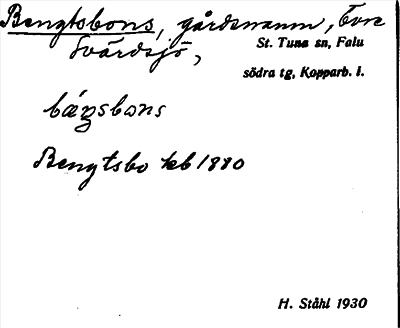 Bengtsbons, gårdsnamn, Övre
Svärdsjö,
St. Tuna sn, Falu
södra tg, Kopparb. l.
Bengtsbo kb 1880
H. Ståhl 1930